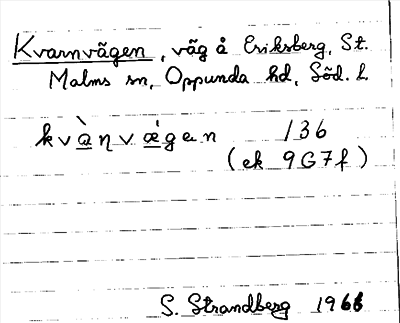 Kvarnvägen, väg å Eriksberg, St.
Malms sn, Oppunda hd, Söd. l.
kvàṇvǽgen 136
(ek 9G7f)
S. Strandberg 1966